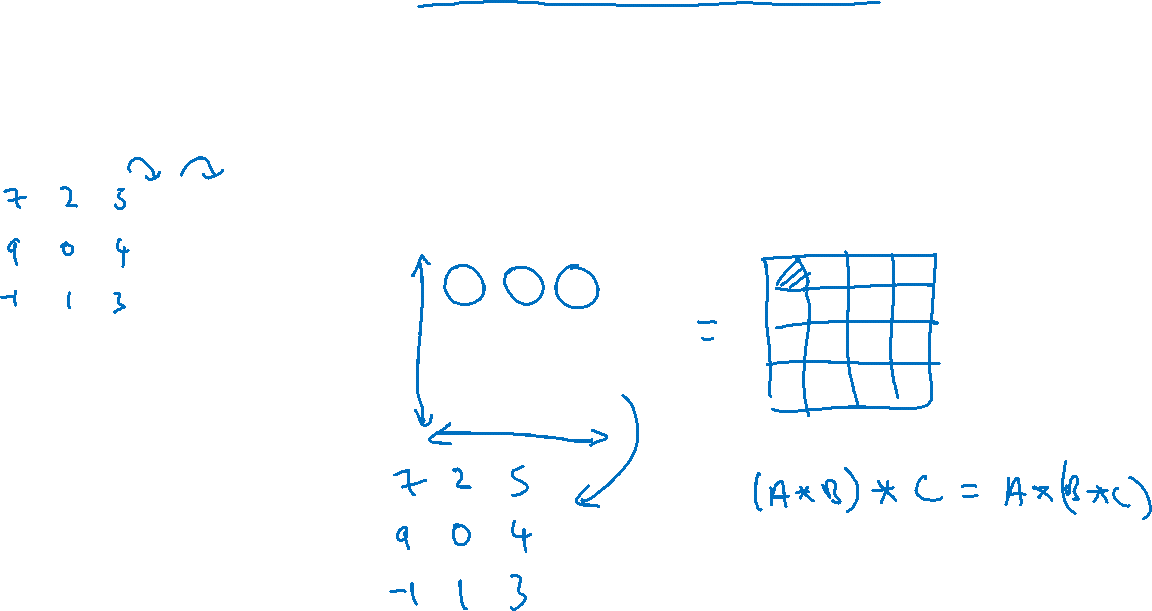 7 2 5
9 0 4
-1 1 3
=
7 2 5
9 0 4
-1 1 3
(A*B) * C = A*(B*C)